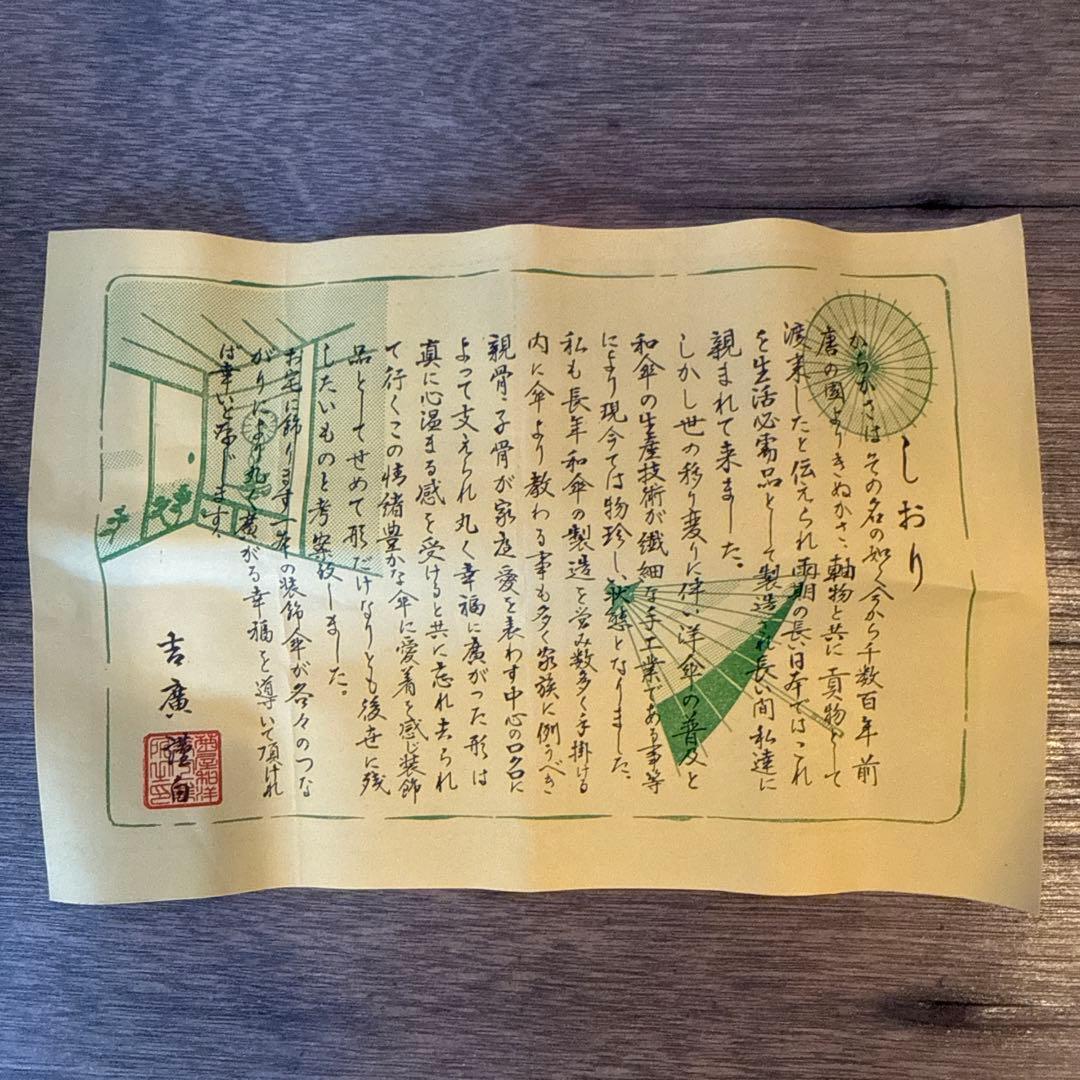 しおり
からかさはその名の如く今から千数百年前
唐の國よりきぬかさ、軸物と共に貢物として
渡来したと伝えられ雨期の長い日本ではこれ
を生活必需品として製造され長い間私達に
親まれて来ました。
しかし世の移り変りに伴い洋傘の普及と
和傘の生産技術が繊細な手工業である事等
により現今では物珍しい状態となりました。
私も長年和傘の製造を営み数多く手掛ける
内に傘より教わる事も多く家族に例うべき
親骨・子骨が家庭愛を表わす中心のロクロに
よって支えられ丸く幸福に廣がった形は
真に心温まる感を受けると共に忘れ去られ
て行くこの情緒豊かな傘に愛着を感じ装飾
品としてせめて形だけなりとも後世に残
したいものと考案致しました。
お宅に飾ります一本の装飾傘が各々のつな
がりにより丸く廣がる幸福を導いて頂ければ
ば幸いと存じます。
吉廣 謹白